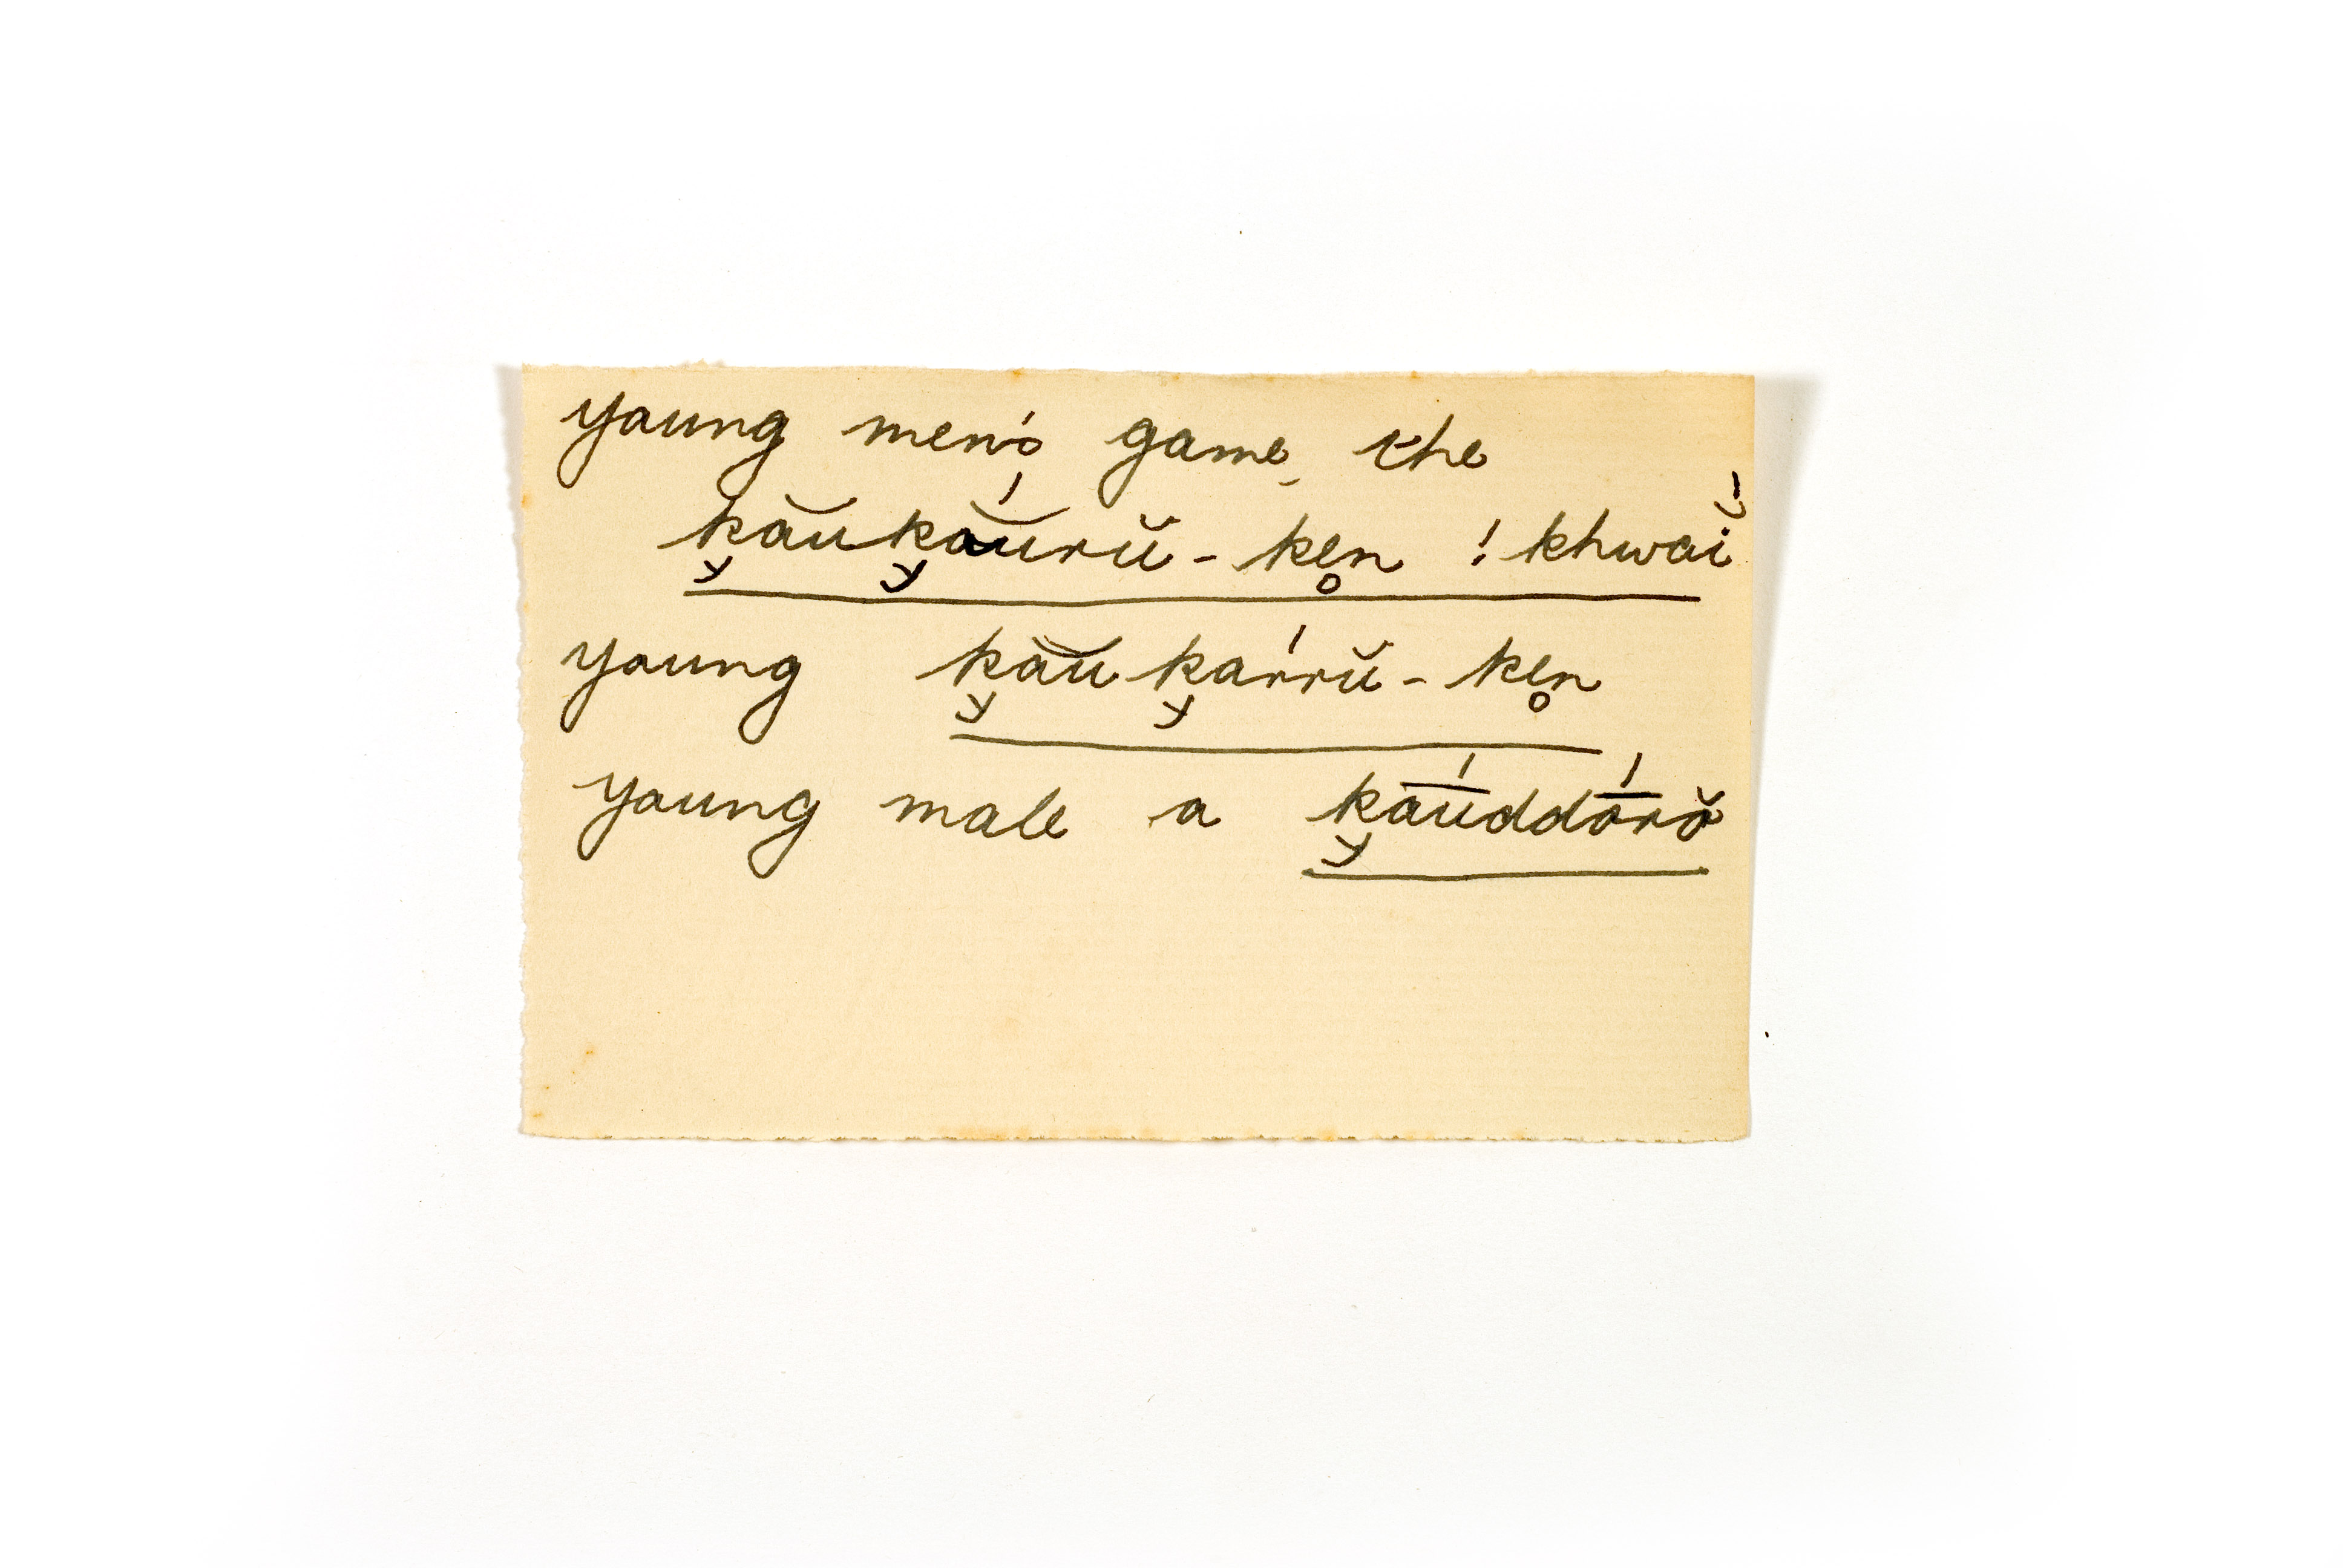 young men's game, the
k̬ău͝k̬ắu͝rŭ - ke̥n ! khwaĭ́
young k̬ău͝ k̬árrŭ - ke̥n
young male a k̬a͞úddā́rŏ